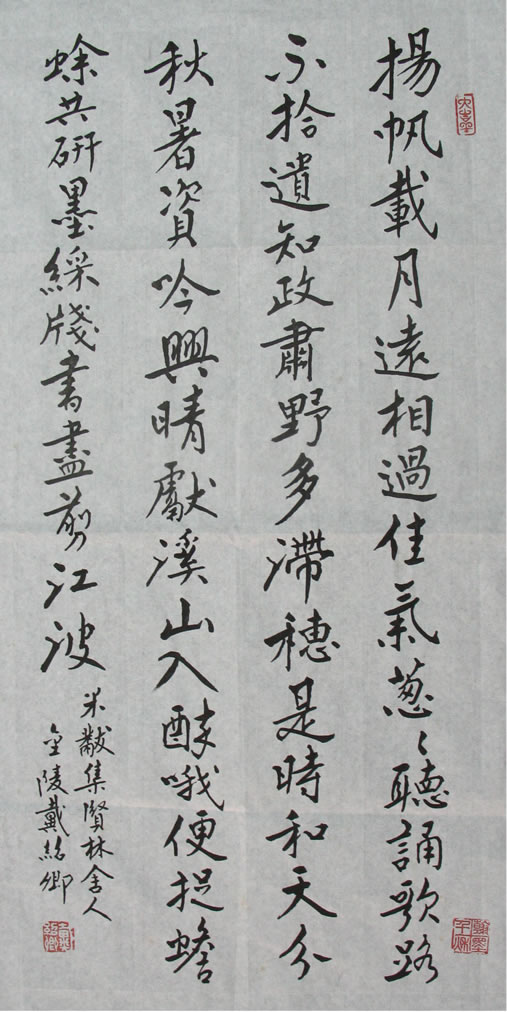 揚帆載月遠相過佳氣葱々聽誦歌路
不拾遺知政肅野多滯穗是時和天分
秋暑資吟興晴獻溪山入酔哦便捉蟾
蜍共研墨綵牋書盡剪江波
米黻集賢林舍人
金陵戴紹卿